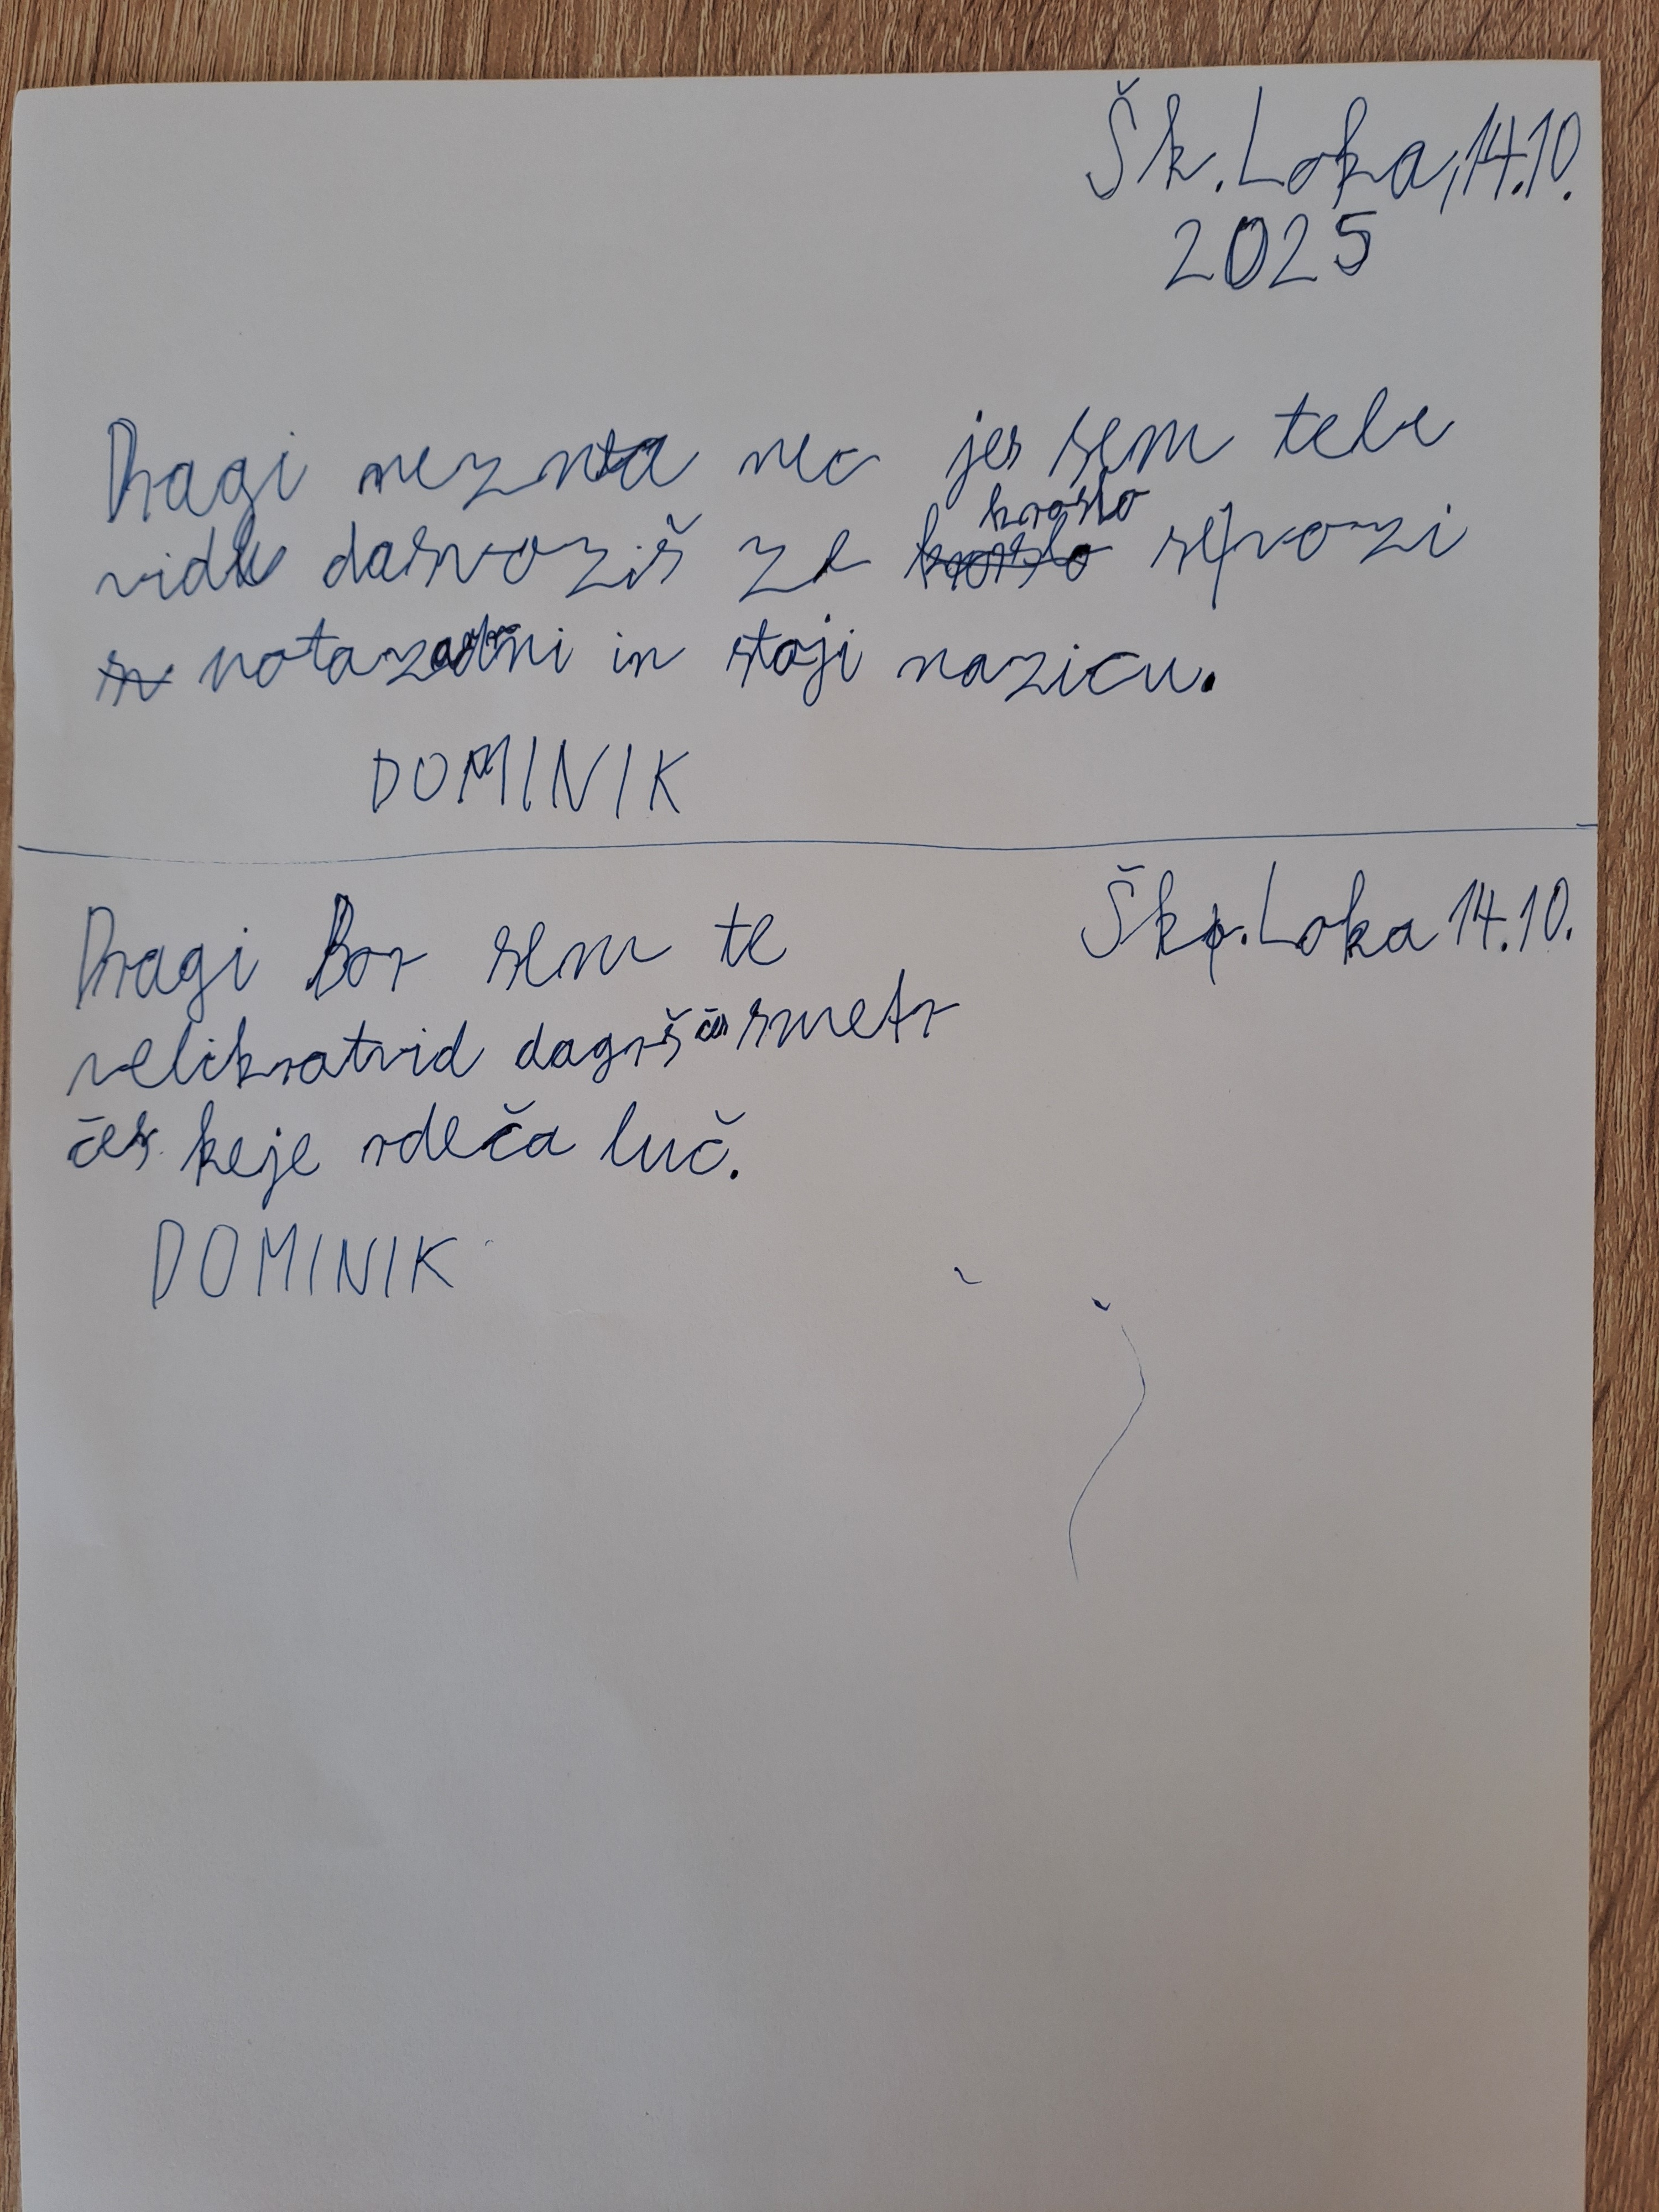 Šk. Loka, 14.10.
2025
Dragi neznta nec jes sem tebe
vidu dasvoziš ze kroslo sefvozi
notazadni in stoji nazicu.
DOMINIK
Škp. Loka 14.10.
Dragi Bor sem te
velikratvid dagrš čes smetr
čes keje rdeča luč.
DOMINIK